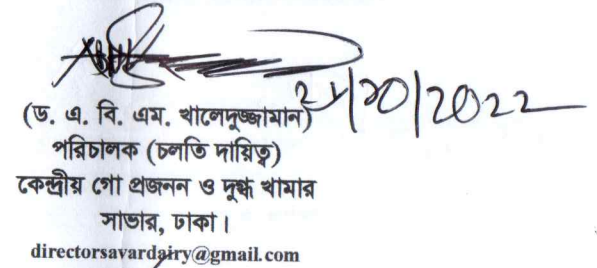 (ড. এ. বি. এম. খালেদুজ্জামান)
পরিচালক (চলতি দায়িত্ব)
কেন্দ্রীয় গো প্রজনন ও দুগ্ধ খামার
সাভার, ঢাকা।
directorsavardairy@gmail.com